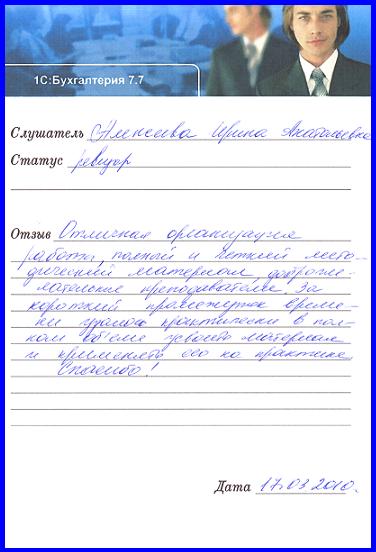 1С:Бухгалтерия 7.7
Слушатель Алексеева Ирина Анатольевна
Статус ревизор
Отзыв Отличная организация
работы, полный и четкий мето-
дический материал, доброже-
лательные преподаватели. За
короткий промежуток време-
ни удалось практически в пол-
ном объеме усвоить материал
и применять его на практике.
Спасибо!
Дата 17.03.2010.